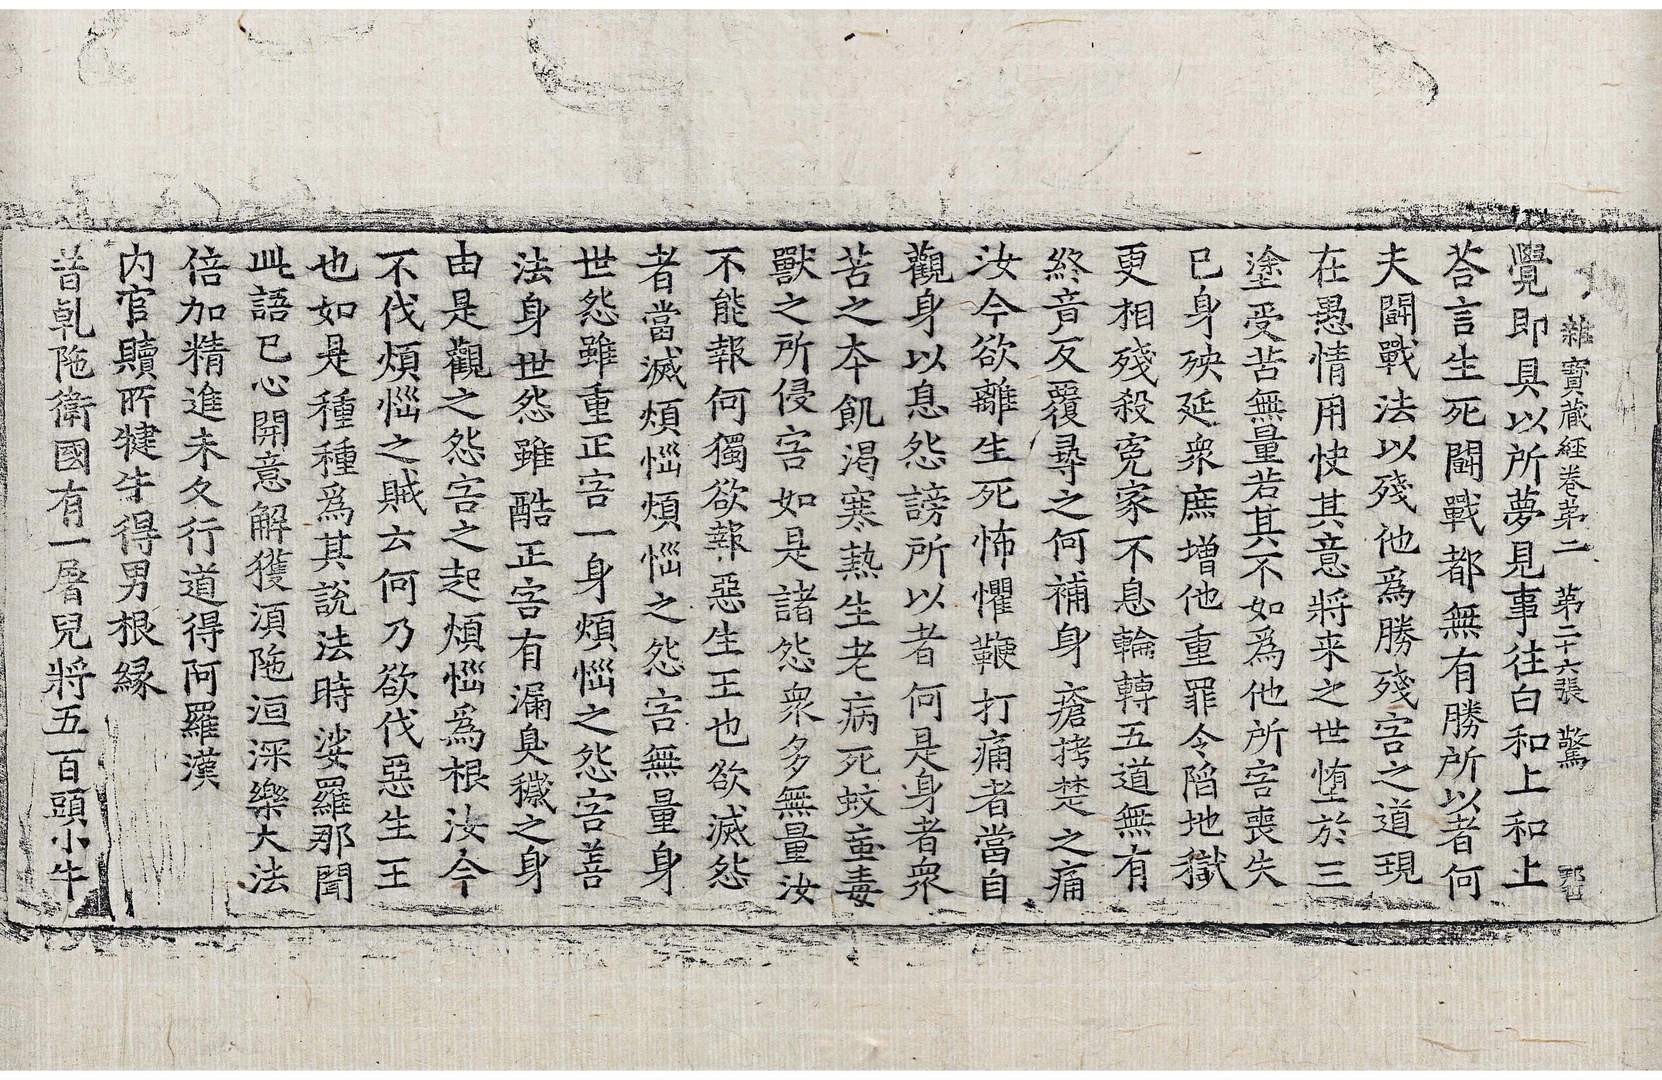 雜寶藏經卷第二　第二十六張　驚
覺即具以所夢見事往白和上和上
荅言生死鬪戰都無有勝所以者何
夫鬪戰法以殘他爲勝殘害之道現
在愚情用快其意將来之世堕於三
塗受苦無量若其不如爲他所害喪失
已身殃延衆庶增他重罪令陷地獄
更相殘殺寃家不息輪轉五道無有
終竟反覆尋之何補身瘡拷楚之痛
汝今欲離生死怖懼鞭打痛者當自
觀身以息怨謗所以者何是身者衆
苦之本飢渴寒熱生老病死蚊䖟毒
獸之所侵害如是諸怨衆多無量汝
不能報何獨欲報惡生王也欲滅怨
者當滅煩惱煩惱之怨害無量身
世怨雖重正害一身煩惱之怨害善
法身世怨雖酷正害有漏臭穢之身
由是觀之怨害之起煩惱爲根汝今
不伐煩惱之賊云何乃欲伐惡生王
也如是種種爲其説法時娑羅那聞
此語已心開意解獲湏陁洹深樂大法
倍加精進未久行道得阿羅漢
内官贖所犍牛得男根縁
昔乹陁衛國有一屠兒將五百頭小牛